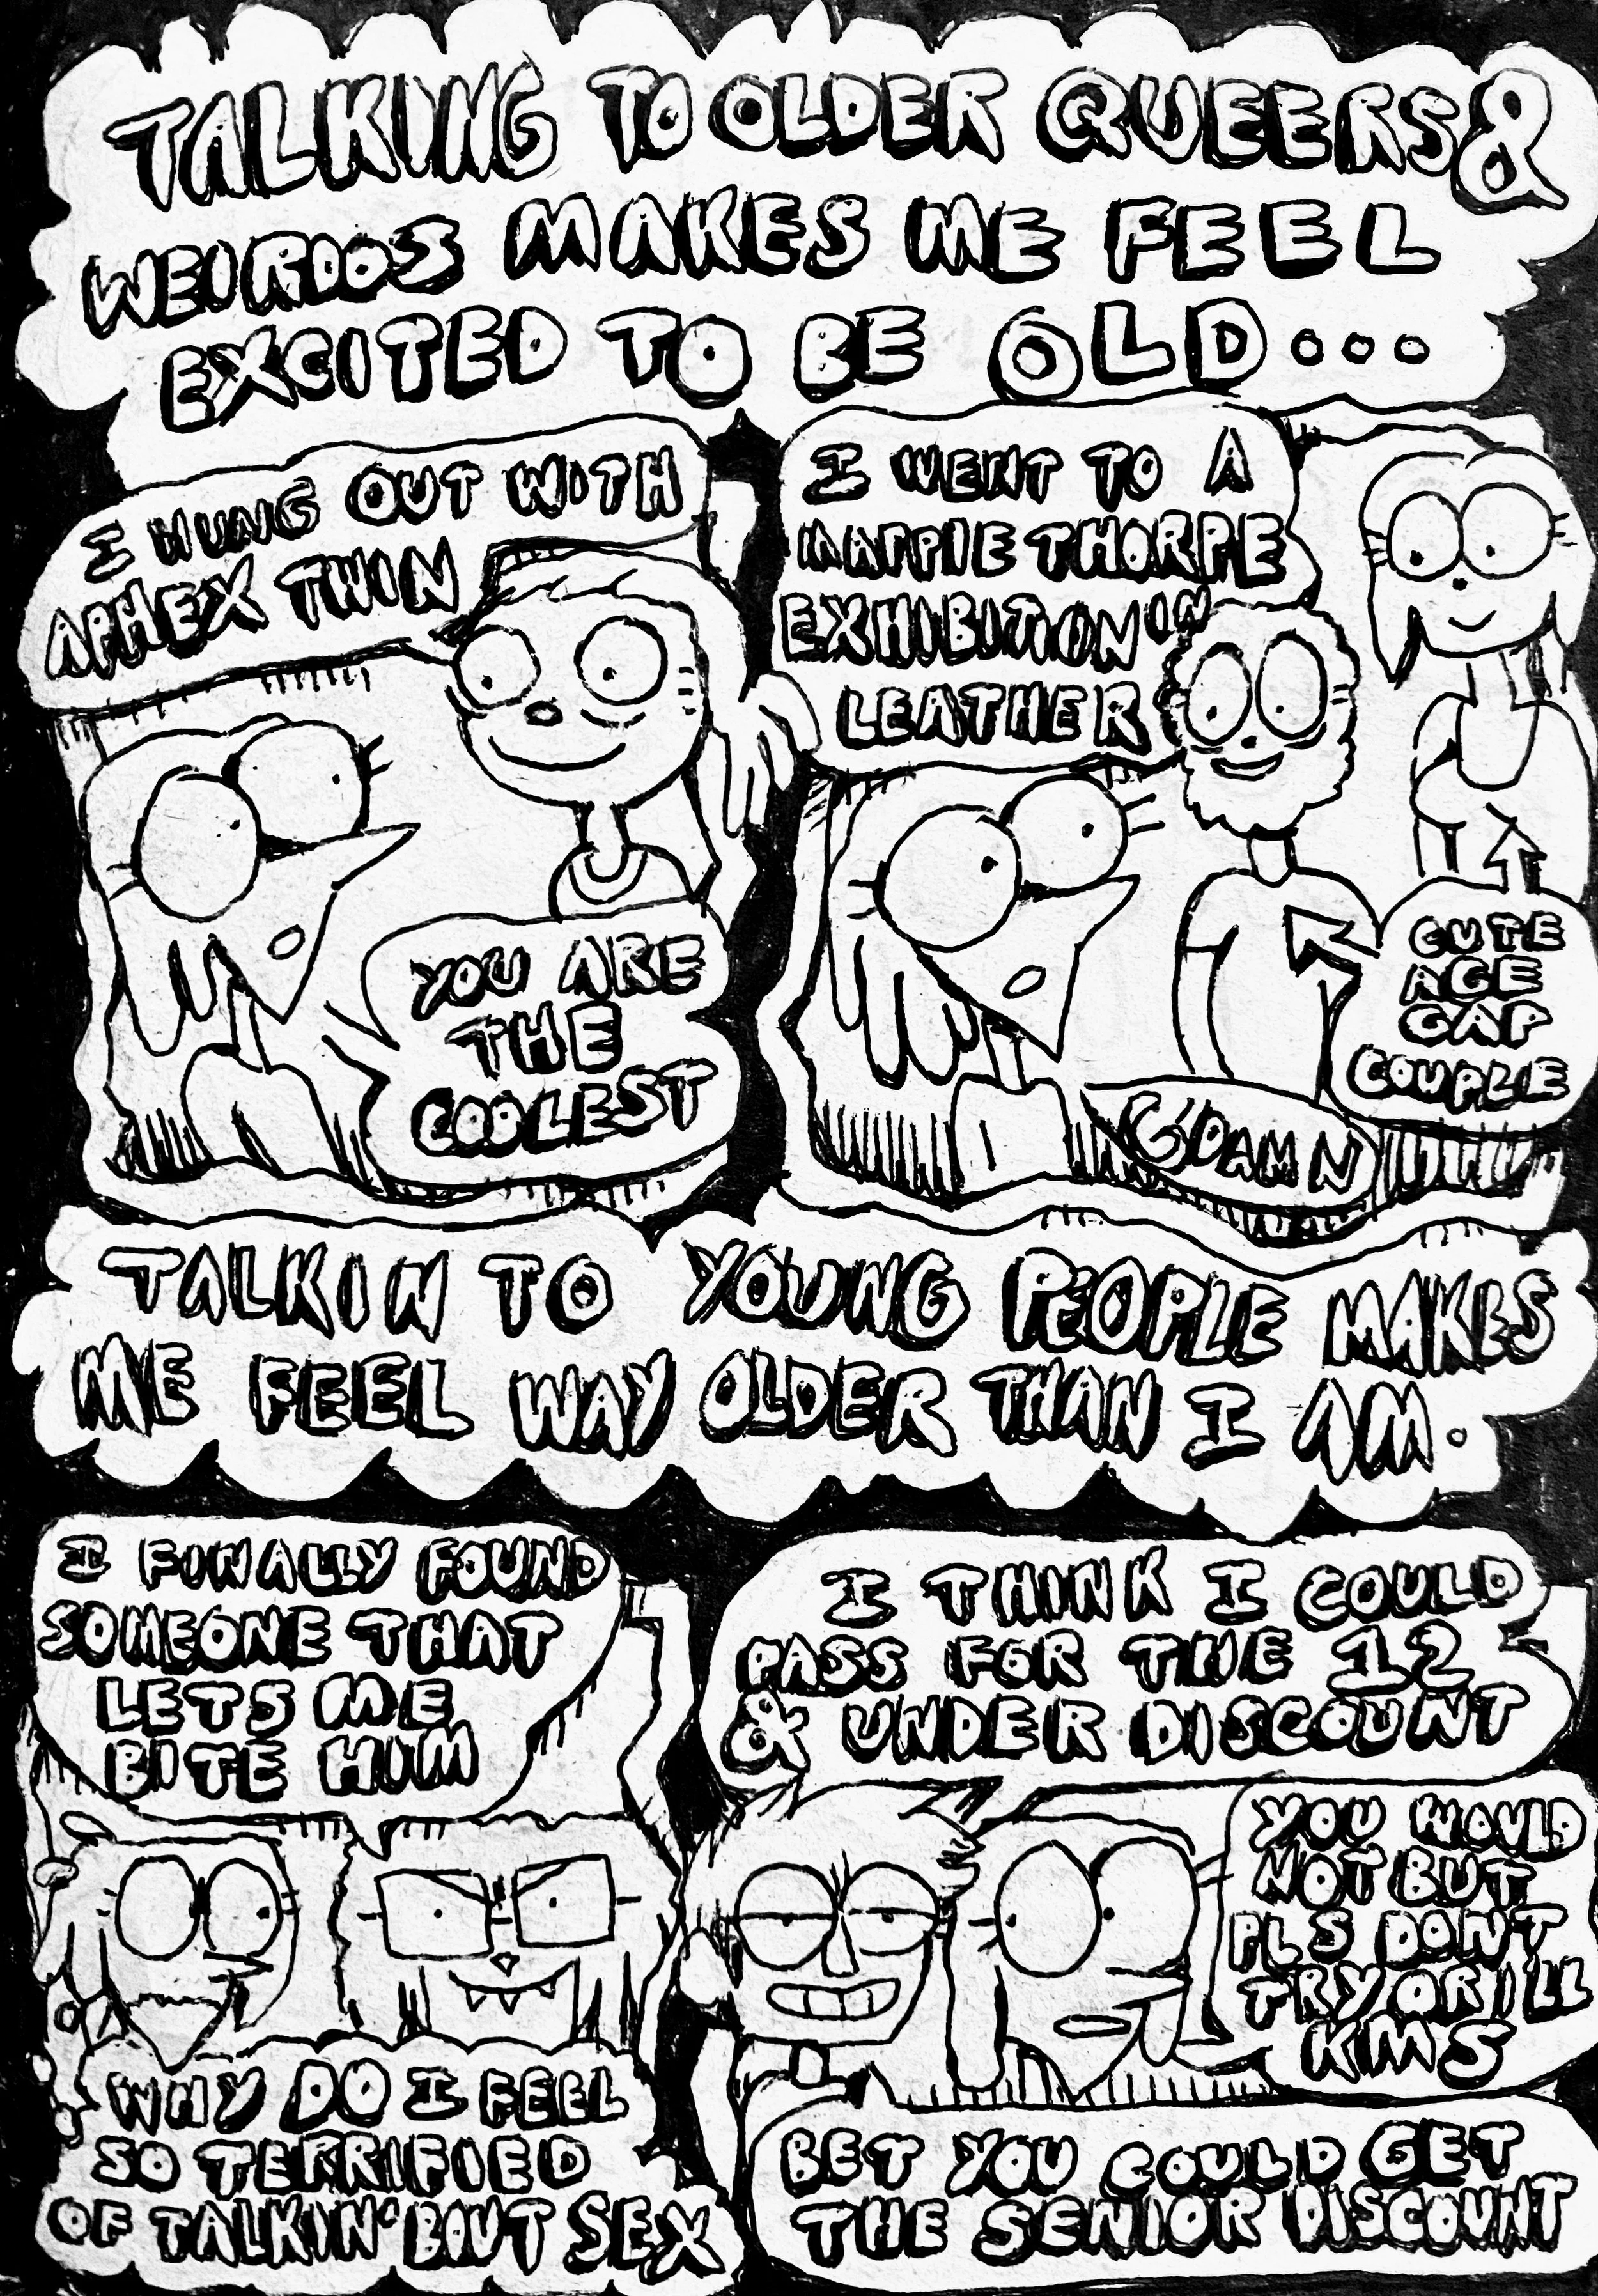 TALKING TO OLDER QUEERS &
WEIRDOS MAKES ME FEEL
EXCITED TO BE OLD...
I HUNG OUT WITH
APHEX TWIN
YOU ARE
THE
COOLEST
I WENT TO A
MAPPIE THORPE
EXHIBITION IN
LEATHER
CUTE
AGE
GAP
COUPLE
GDAMN
TALKIN TO YOUNG PEOPLE MAKES
ME FEEL WAY OLDER THAN I AM.
I FINALLY FOUND
SOMEONE THAT
LETS ME
BITE HIM
WHY DO I FEEL
SO TERRIFIED
OF TALKIN' BOUT SEX
I THINK I COULD
PASS FOR THE 12
& UNDER DISCOUNT
YOU WOULD
NOT BUT
PLS DONT
TRY OR ILL
KMS
BET YOU COULD GET
THE SENIOR DISCOUNT